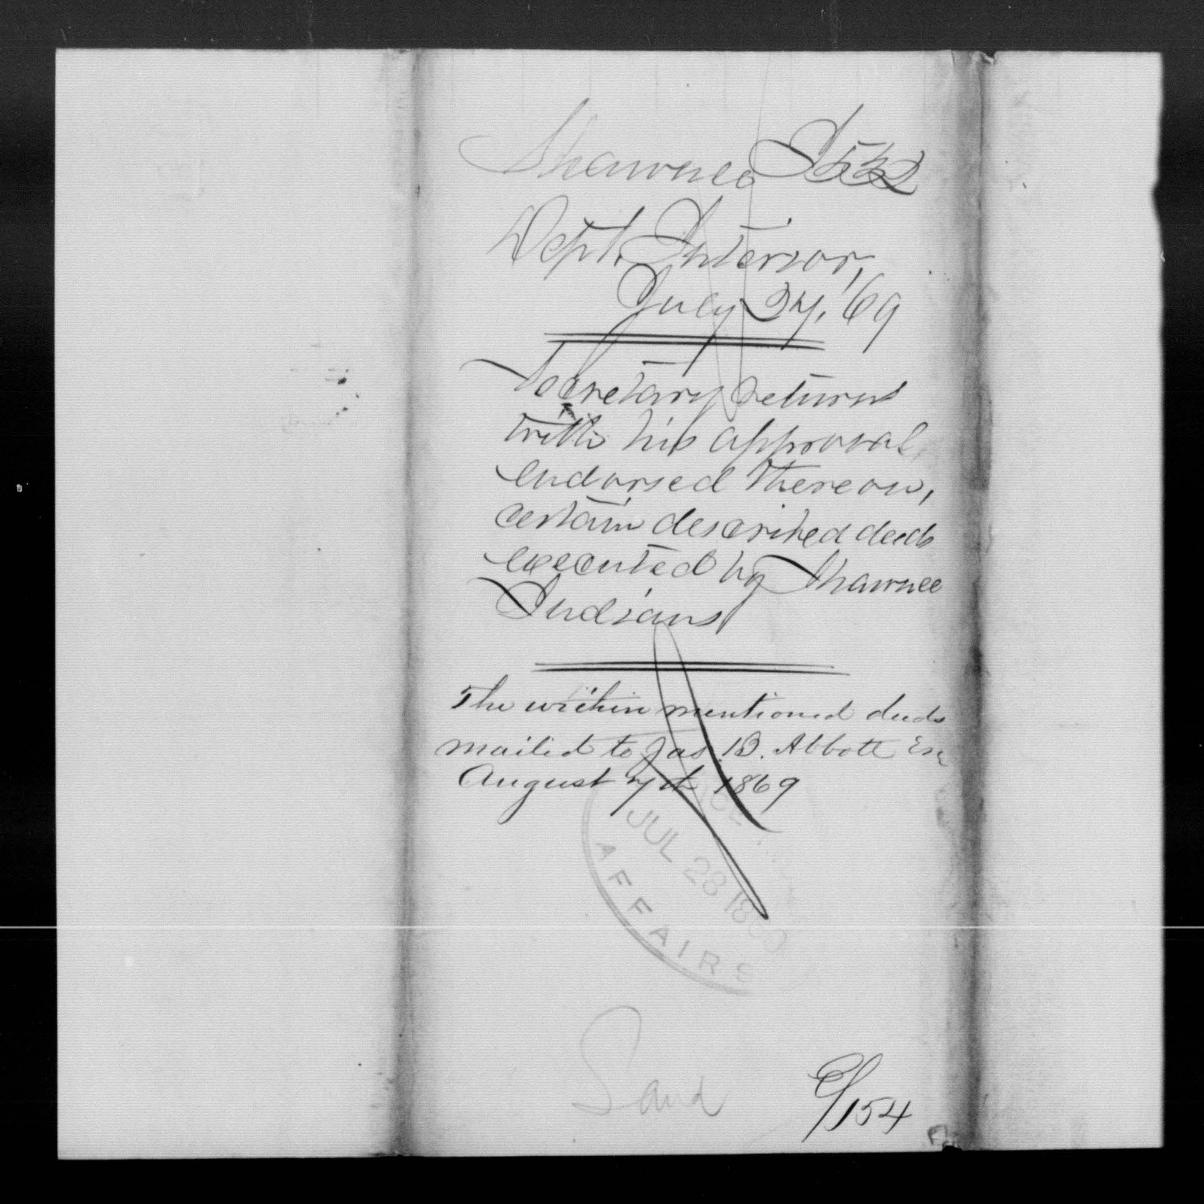 Shawnee I532
Dept. Interior,
July 27, '69
Secretary returns
with his approval
endorsed thereon,
certain described deeds
executed by Shawnee
Indians
The within mentioned deeds
mailed to Jas. B. Abbott Esq
August 7th 1869
JUL 28 1869
AFFAIRS
Land
/154